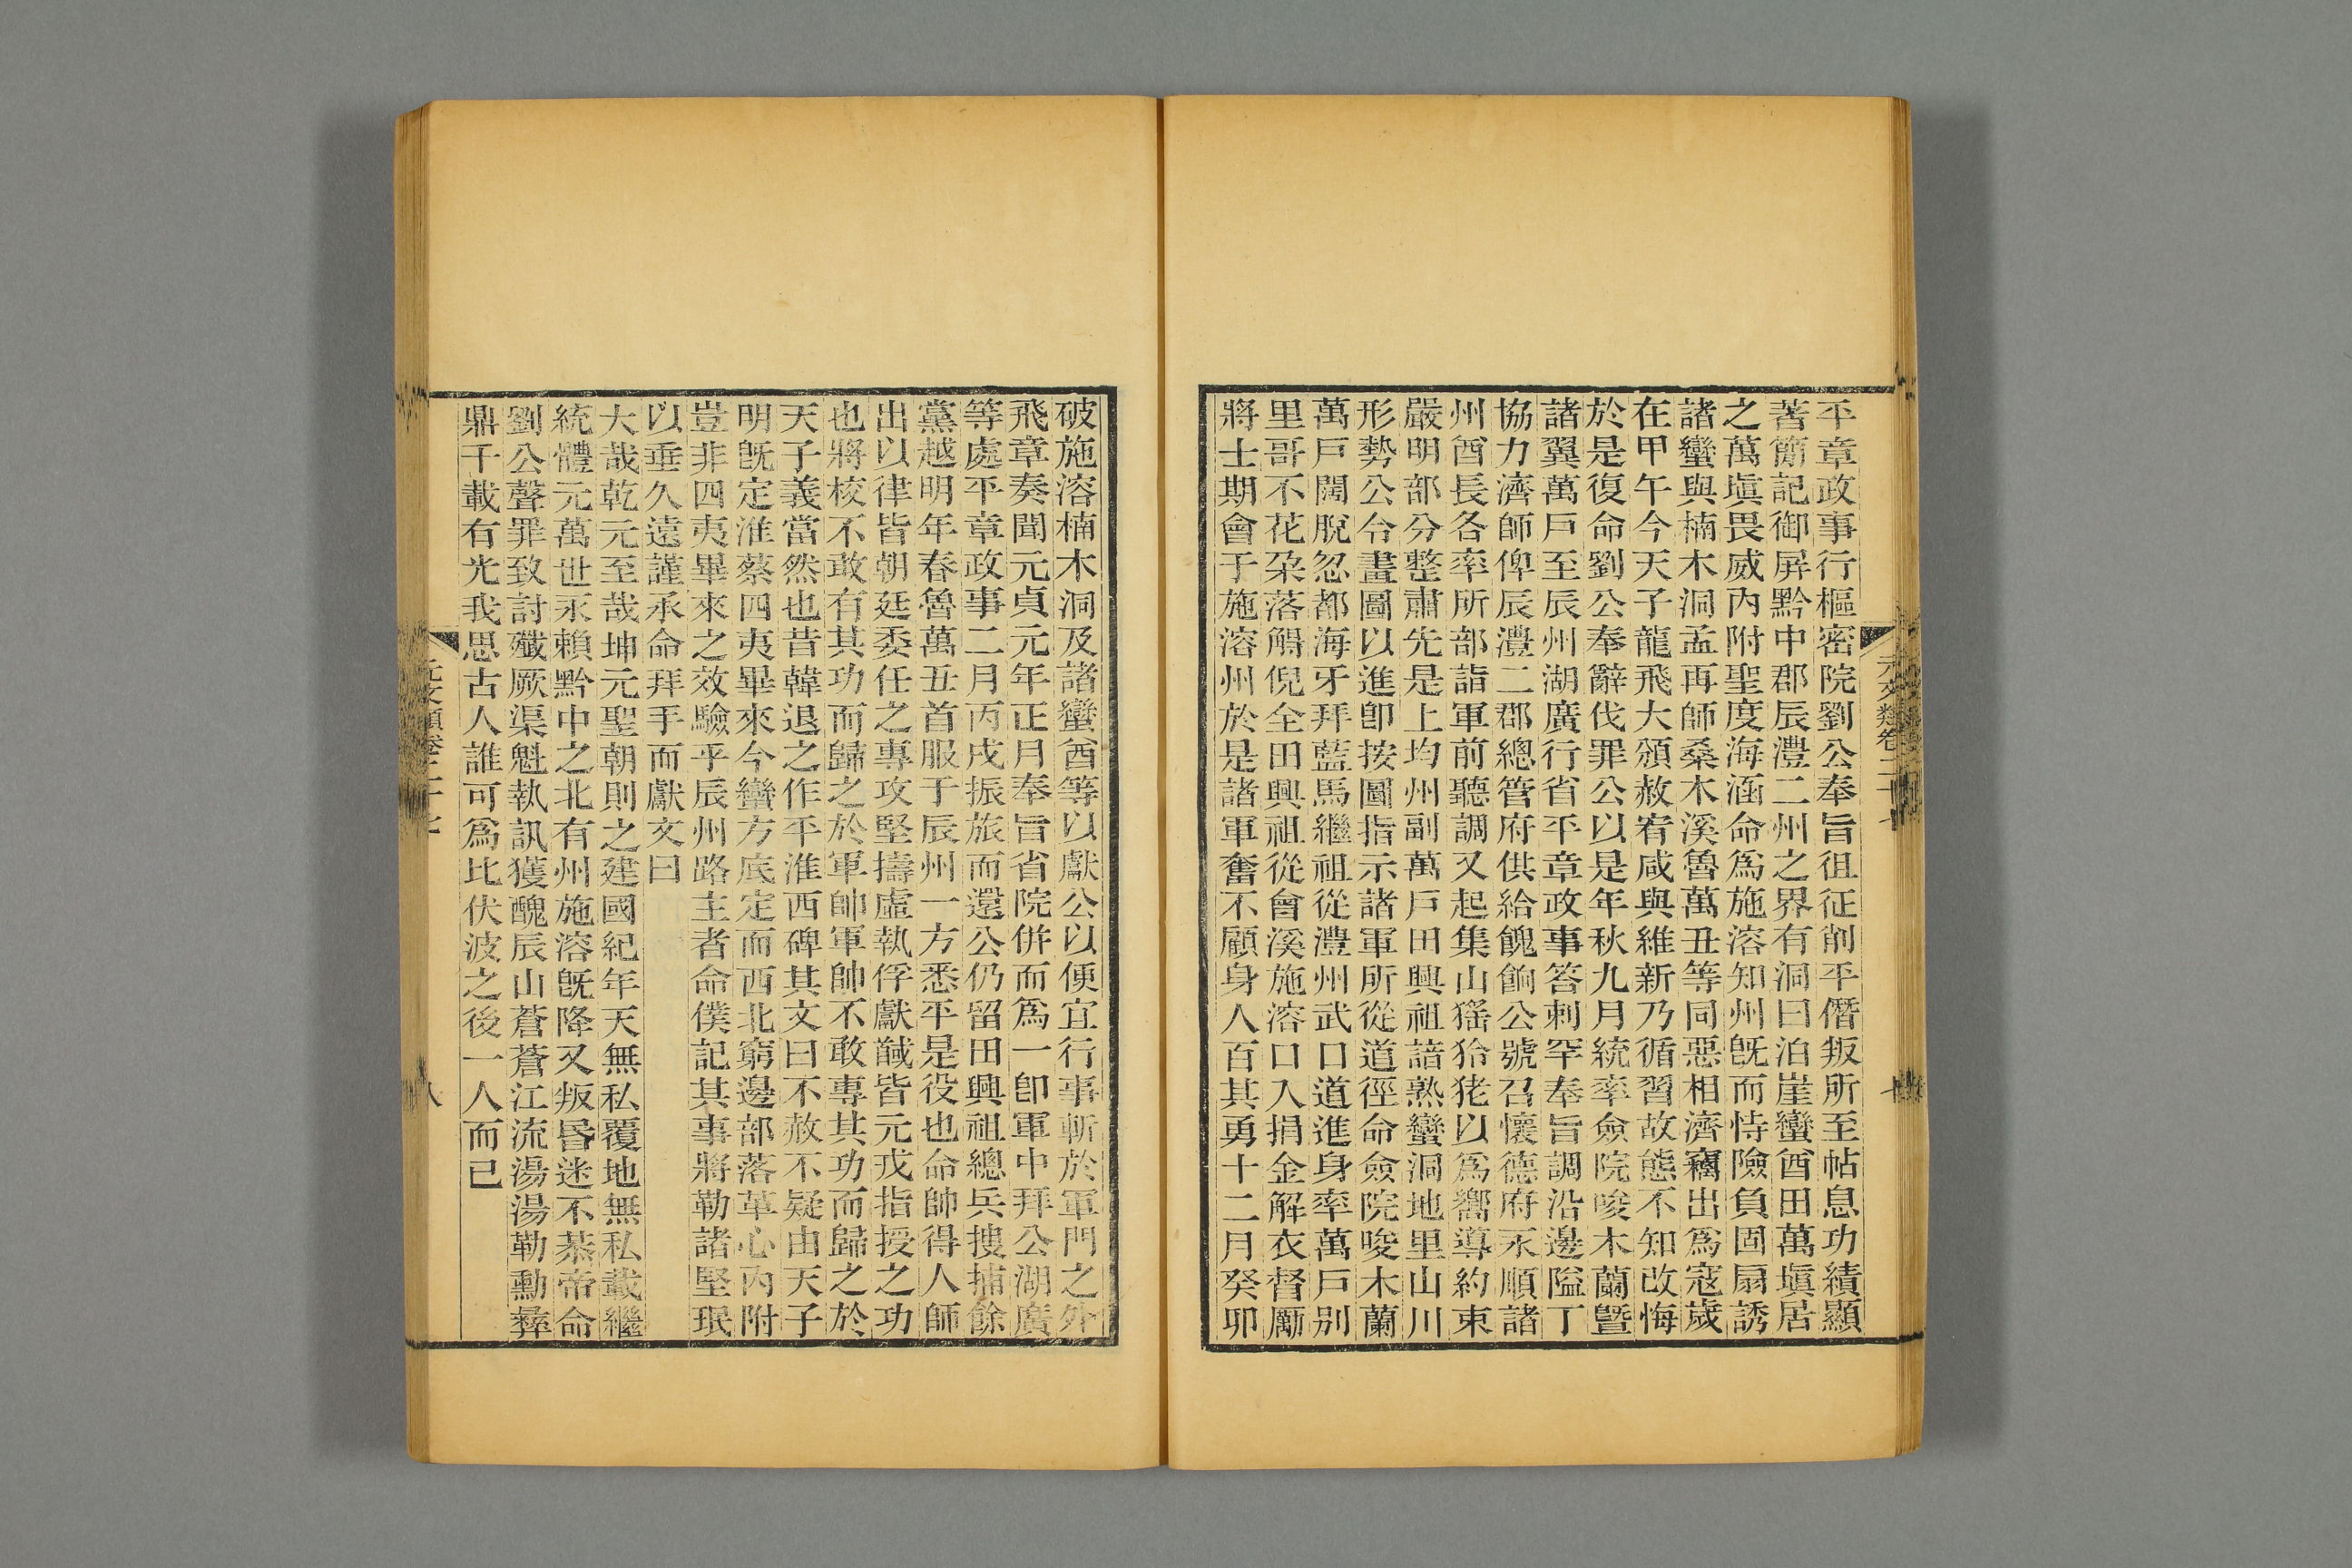 平章政事行樞密院劉公奉旨徂征削平僭叛所至帖息功績顯
著簡記御屏黔中郡辰澧二州之界有洞曰泊崖蠻酋田萬塡居
之萬塡畏威內附聖度海涵命爲施溶知州旣而恃險負固扇誘
諸蠻與楠木洞孟再師桑木溪魯萬丑等同惡相濟竊出爲寇歲
在甲午今天子龍飛大頒赦宥咸與維新乃循習故態不知改悔
於是復命劉公奉辭伐罪公以是年秋九月統率僉院唆木蘭曁
諸翼萬戸至辰州湖廣行省平章政事答剌罕奉旨調沿邊隘丁
協力濟師俾辰澧二郡總管府供給餽餉公號召懷德府永順諸
州酋長各率所部詣軍前聽調又起集山猺狑狫以爲嚮導約束
嚴明部分整肅先是上均州副萬戸田興祖諳熟蠻洞地里山川
形勢公令畫圖以進卽按圖指示諸軍所從道徑命僉院唆木蘭
萬戸闊脫忽都海牙拜藍馬繼祖從澧州武口道進身率萬戸別
里哥不花朶落觸倪全田興祖從會溪施溶口入捐金解衣督勵
將士期會于施溶州於是諸軍奮不顧身人百其勇十二月癸卯
元文類卷二十七
破施溶楠木洞及諸蠻酋等以獻公以便宜行事斬於軍門之外
飛章奏聞元貞元年正月奉旨省院併而爲一卽軍中拜公湖廣
等處平章政事二月丙戌振旅而還公仍留田興祖總兵搜捕餘
黨越明年春魯萬丑首服于辰州一方悉平是役也命帥得人師
出以律皆朝廷委任之專攻堅擣虛執俘獻馘皆元戎指授之功
也將校不敢有其功而歸之於軍帥軍帥不敢專其功而歸之於
天子義當然也昔韓退之作平淮西碑其文曰不赦不疑由天子
明旣定淮蔡四夷畢來今蠻方底定而西北窮邊部落革心內附
豈非四夷畢來之效驗乎辰州路主者命僕記其事將勒諸堅珉
以垂久遠謹承命拜手而獻文曰
大哉乾元至哉坤元聖朝則之建國紀年天無私覆地無私載繼
統體元萬世永賴黔中之北有州施溶旣降又叛昏迷不恭帝命
劉公聲罪致討殲厥渠魁執訊獲醜辰山蒼蒼江流湯湯勒勳彝
鼎千載有光我思古人誰可爲比伏波之後一人而已
元文類卷二十七
八